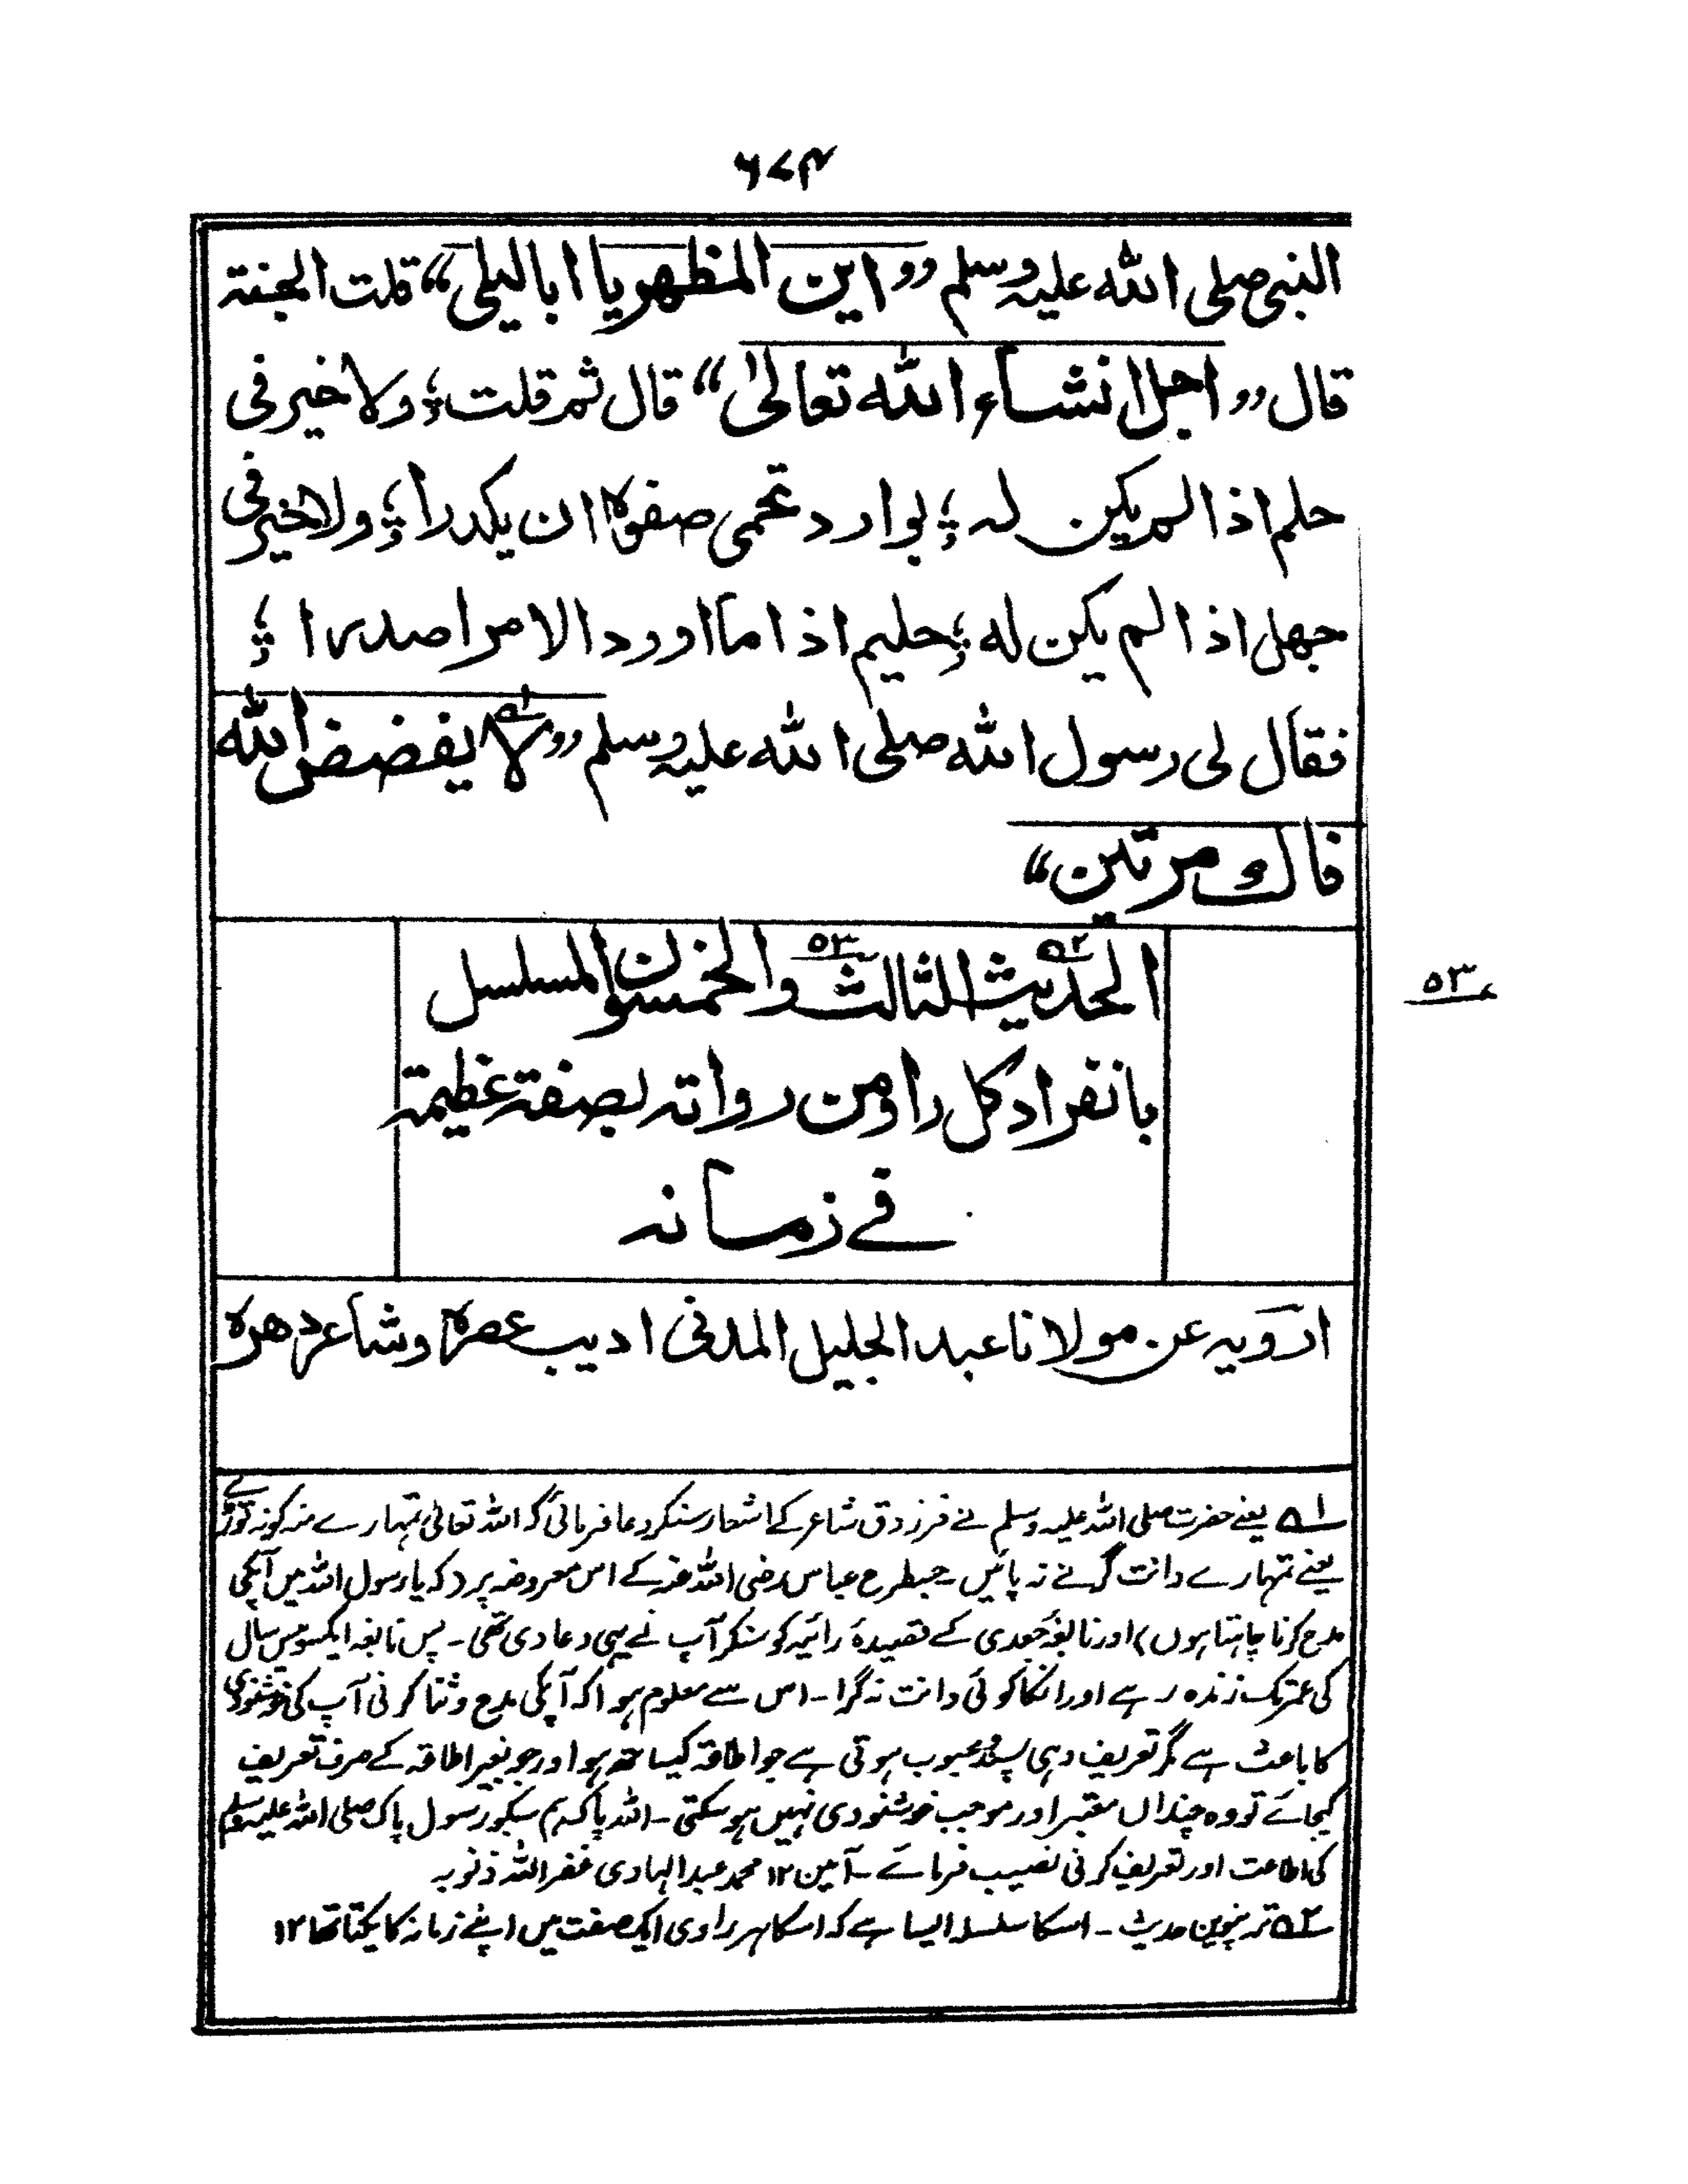 ۶۷۴
النبی صلی اللہ علیہ وسلم ’’این المظھر یا ابا لیلی‘‘ قلت الجنۃ
قال ’’اجل انشاء اللہ تعالیٰ‘‘ قال ثم قلت ؛ ولا خیر فی
حلم اذا لم یکن لہ ؛ بوادر تحمی صفوہ ان یکدرا ؛ ولا خیر فی
جھل اذا لم یکن لہ ؛ حلیم اذا ما اورد الامر اصدرا ؛
فقال لی رسول اللہ صلی اللہ علیہ وسلم ’’لا۱ یفضض اللہ
فاک مرتین‘‘
الحدیث۲ الثالث والخمسون۵۳ المسلسل
۵۳
بانفراد کل راو من رواتہ بصفۃ عظیمۃ
فے زمانہ
ارویہ عن مولانا عبد الجلیل المدنی ادیب عصرہ وشاعر دھرہ
۱ یعنے حضرت صلی اللہ علیہ وسلم نے فرزدق شاعر کے اشعار سنکر دعا فرمائی کہ اللہ تعالیٰ تمہارے منہ کو نہ توڑے
یعنے تمہارے دانت گرنے نہ پائیں ۔ جسطرح عباس رضی اللہ عنہ کے اس معروضہ پر (کہ یا رسول اللہ میں آپکی
مدح کرنا چاہتا ہوں) اور نابغۂ جعدی کے قصیدۂ رائیہ کو سنکر آپ نے یہی دعا دی تھی ۔ پس نابغہ ایکسو بیس سال
کی عمر تک زندہ رہے اور انکا کوئی دانت نہ گرا ۔ اس سے معلوم ہوا کہ آپکی مدح وثنا کرنی آپ کی خوشنودی
کا باعث ہے مگر تعریف وہی پسند محبوب ہوتی ہے جو اطاعت کیساتھ ہو اور جو بغیر اطاعت کے صرف تعریف
کیجائے تو وہ چنداں معتبر اور موجب خوشنودی نہیں ہو سکتی ۔ اللہ پاک ہم سبکو رسول پاک صلی اللہ علیہ وسلم
کی اطاعت اور تعریف کرنی نصیب فرمائے ۔ آمین ۱۲ محمد عبد الہادی غفر اللہ ذنوبہ
۲ ترپنویں حدیث ۔ اسکا سلسلہ ایسا ہے کہ اسکا ہر راوی ایک صفت میں اپنے زمانہ کا یکتا تھا ۱۲